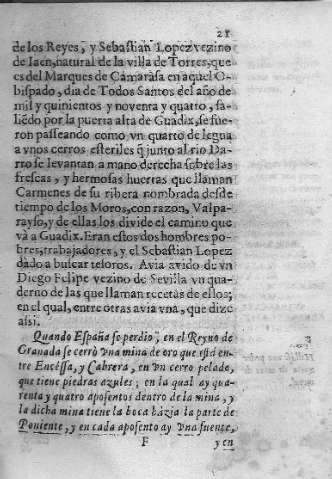 21
de los Reyes, y Sebastian Lopez vezino
de Iaen, natural de la villa de Torres, que
es del Marques de Camarasa en aquel O-
bispado, dia de Todos Santos del año de
mil y quinientos y noventa y quatro, sa-
liẽdo por la puerta alta de Guadix, se fue-
ron passeando como vn quarto de legua
a vnos cerros esteriles q̃ junto al rio Da-
rro se levantan a mano derecha sobre las
frescas, y hermosas huertas que llaman
Carmenes de su ribera nombrada desde
tiempo de los Moros, con razon, Valpa-
rayso, y de ellas los divide el camino que
và a Guadix. Eran estos dos hombres po-
bres, trabajadores, y el Sebastian Lopez
dado a buscar tesoros. Avia avido de vn
Diego Felipe vezino de Sevilla vn qua-
derno de las que llaman recetas de estos;
en el qual, entre otras avia vna, que dize
assi.
Quando España se perdio; en el Reyno de
Granada se cerrò vna mina de oro que està en-
tre Encessa, y Cabrera, en vn cerro pelado,
que tiene piedras azules; en la qual ay qua-
renta y quatro aposentos dentro de la mina, y
la dicha mina tiene la boca hàzia la parte de
Poniente, y en cada aposento ay vna fuente,
F y en